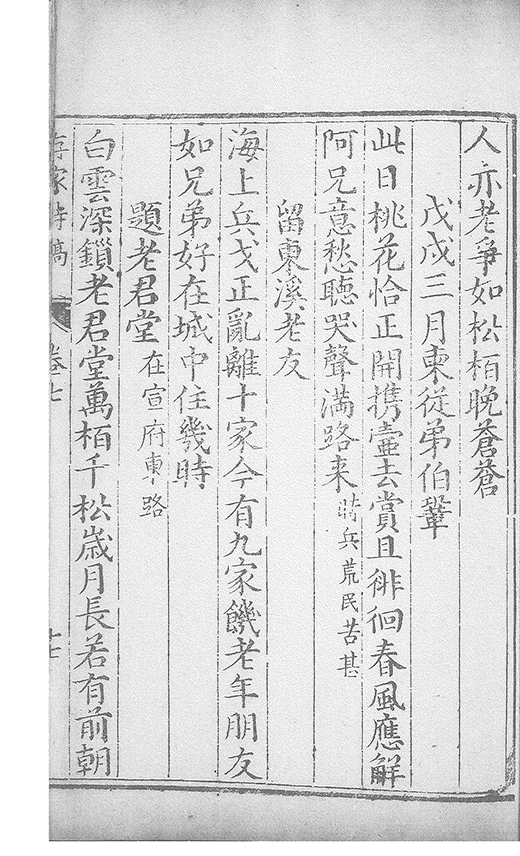 人亦老爭如松栢晚蒼蒼
戊戌三月柬従弟伯鞏
此日桃花恰正開携壷去賞且徘徊春風應觧
阿兄意愁聽哭聲满路来時兵荒民苦甚
留東溪老友
海上兵戈正亂離十家今有九家饑老年朋友
如兄弟好在城中住幾時
題老君堂在宣府東路
白雲深鎻老君堂萬栢千松歳月長若有前朝
家詩稿
卷七
十七